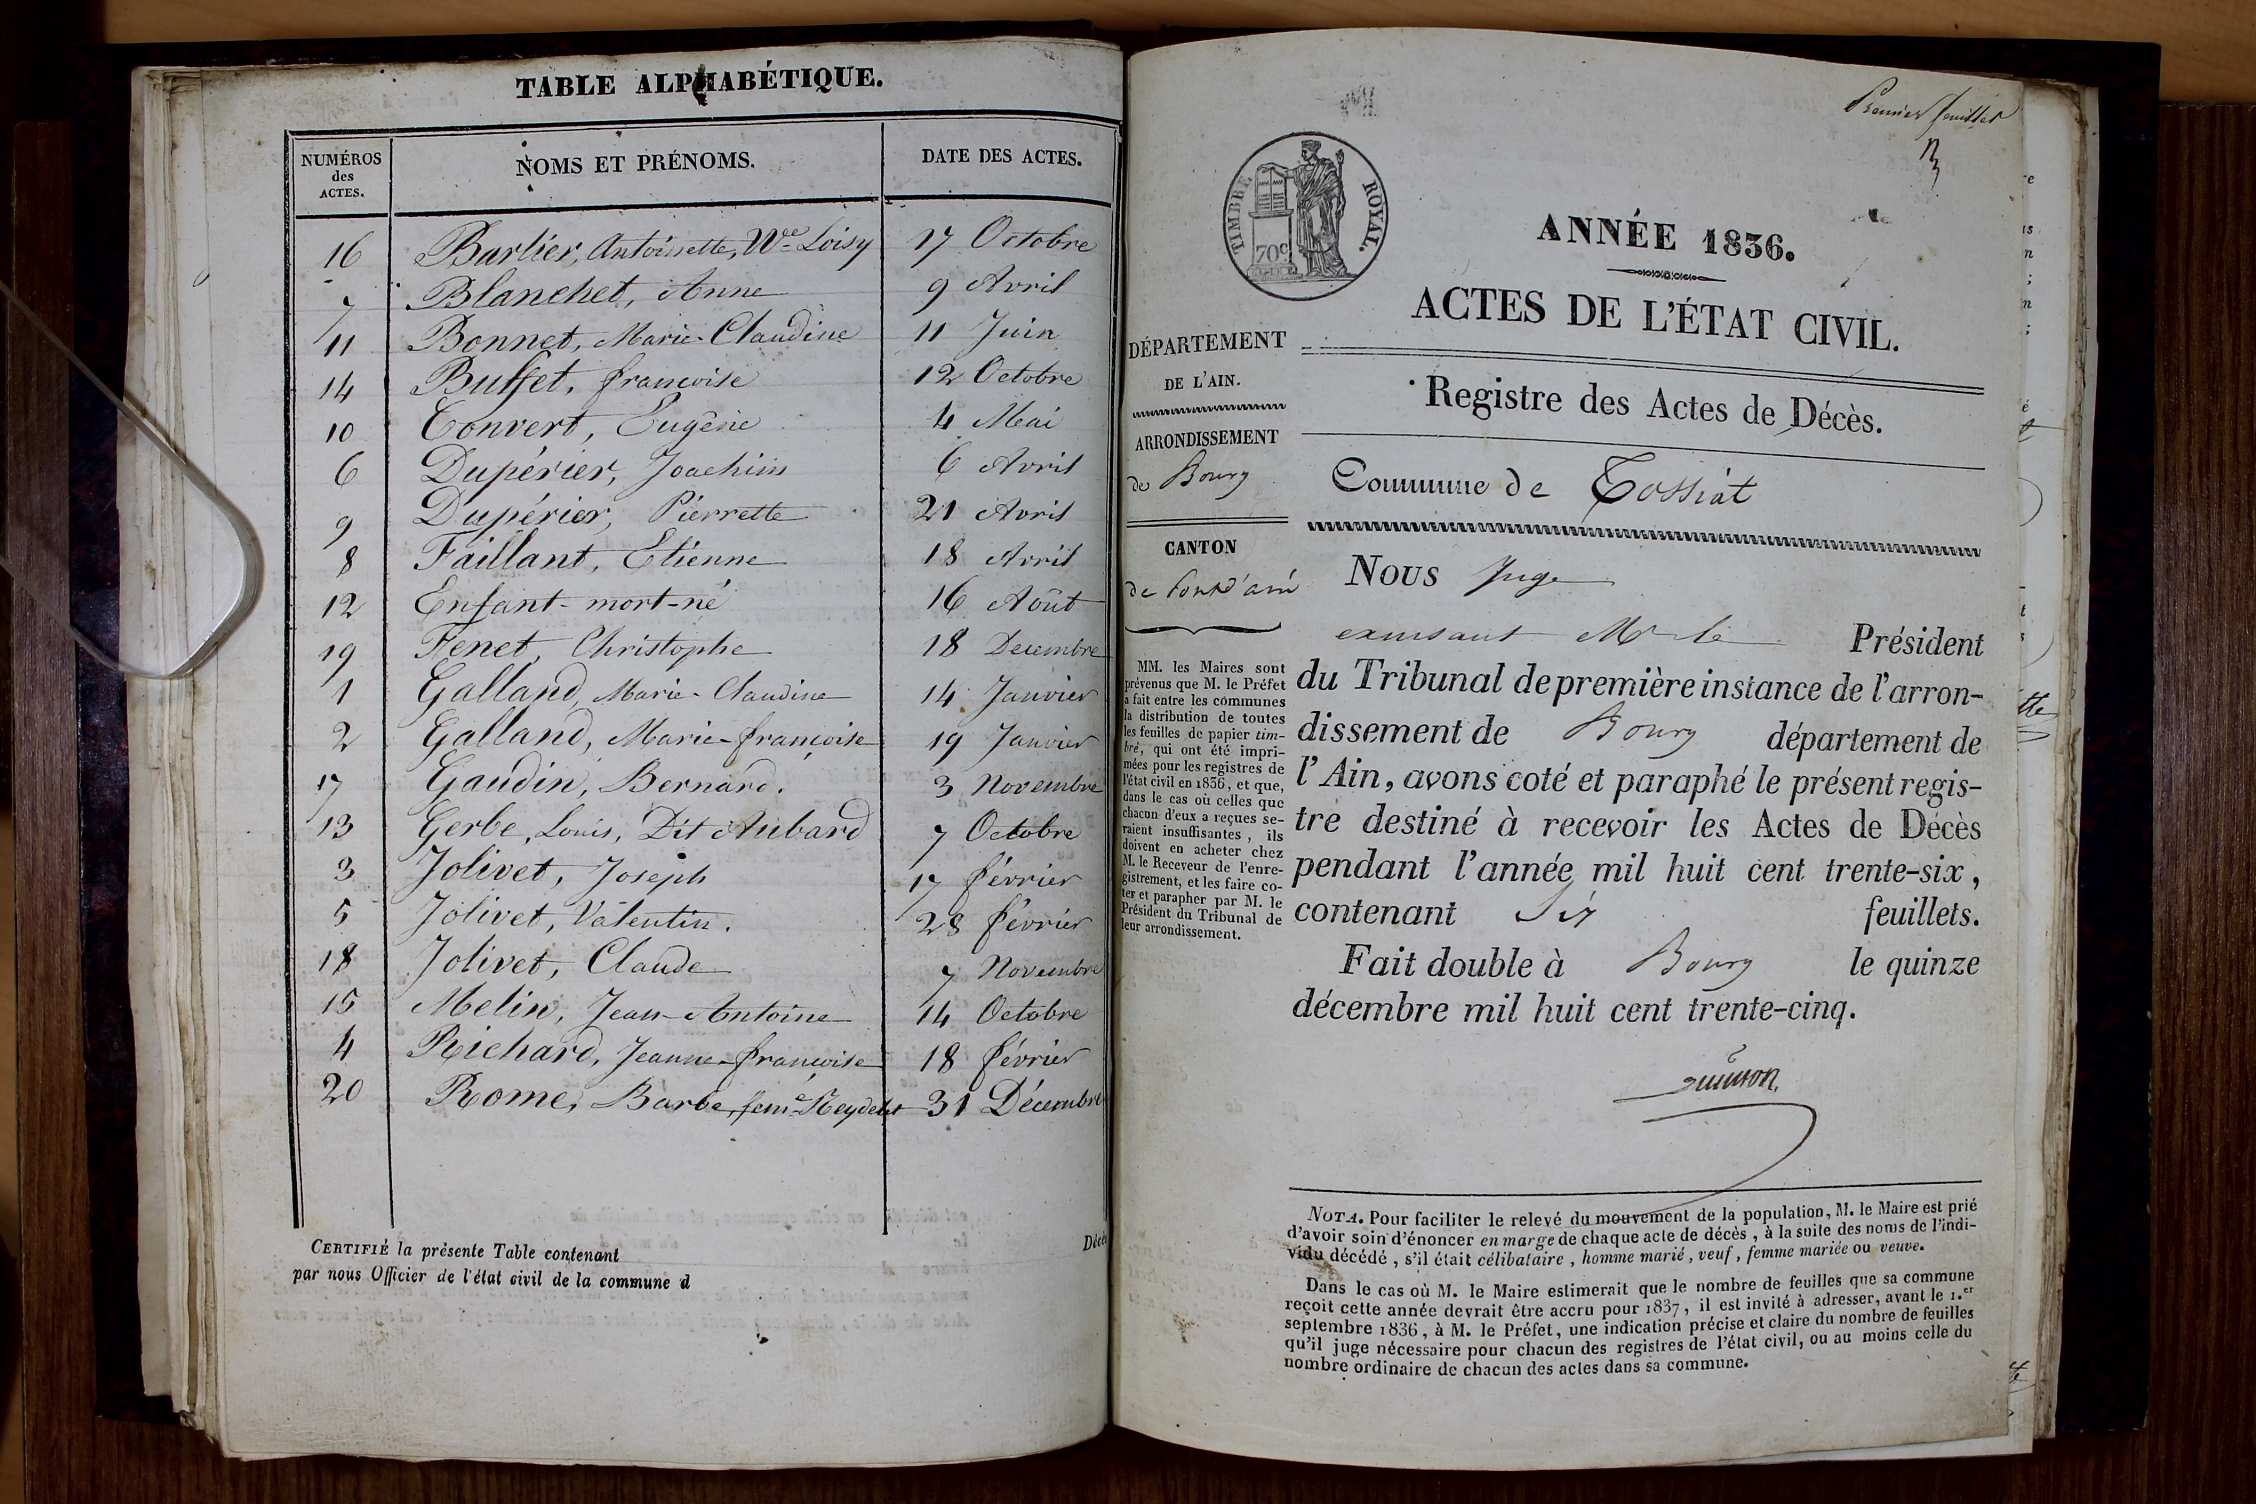 TABLE ALPHABÉTIQUE.
NUMÉROS des ACTES. NOMS ET PRÉNOMS. DATE DES ACTES.
16 Barlier, Antoinette, Ve Loisy 17 Octobre
7 Blanchet, Anne 9 Avril
11 Bonnet, Marie-Claudine 11 Juin
14 Buffet, françoise 12 Octobre
10 Convert, Eugénie 4 Mai
6 Dupérier, Joachim 6 Avril
9 Dupérier, Pierrette 21 Avril
8 Faillant, Etienne 18 Avril
12 Enfant-mort-né 16 Août
19 Fenet, Christophe 18 Decembre
1 Galland, Marie-Claudine 14 Janvier
2 Galland, Marie-françoise 19 Janvier
17 Gaudin, Bernard. 3 Novembre
13 Gerbe, Louis, Dit Aubard 7 Octobre
3 Jolivet, Joseph 17 février
5 Jolivet, Valentin. 28 février
18 Jolivet, Claude 7 Novembre
15 Melin, Jean-Antoine 14 Octobre
4 Richard, Jeanne-françoise 18 février
20 Rome, Barbe, feme Reydelet 31 Décembre
CERTIFIÉ la présente Table contenant
par nous Officier de l'état civil de la commune d
Premier feuillet
TIMBRE ROYAL.
70c
ANNÉE 1836.
ACTES DE L'ÉTAT CIVIL.
Registre des Actes de Décès.
DÉPARTEMENT
DE L'AIN.
ARRONDISSEMENT
de Bourg
CANTON
de Pont d'ain
MM. les Maires sont
prévenus que M. le Préfet
a fait entre les communes
la distribution de toutes
les feuilles de papier tim-
bré, qui ont été impri-
mées pour les registres de
l'état civil en 1836, et que,
dans le cas où celles que
chacun d'eux a reçues se-
raient insuffisantes, ils
doivent en acheter chez
M. le Receveur de l'enre-
gistrement, et les faire co-
ter et parapher par M. le
Président du Tribunal de
leur arrondissement.
Commune de Tossiat
Nous Juge
Mr le Président
du Tribunal de première instance de l'arron-
dissement de Bourg département de
l'Ain, avons coté et paraphé le présent regis-
tre destiné à recevoir les Actes de Décès
pendant l'année mil huit cent trente-six,
contenant Six feuillets.
Fait double à Bourg le quinze
décembre mil huit cent trente-cinq.
NOTA. Pour faciliter le relevé du mouvement de la population, M. le Maire est prié
d'avoir soin d'énoncer en marge de chaque acte de décès, à la suite des noms de l'indi-
vidu décédé, s'il était célibataire, homme marié, veuf, femme mariée ou veuve.
Dans le cas où M. le Maire estimerait que le nombre de feuilles que sa commune
reçoit cette année devrait être accru pour 1837, il est invité à adresser, avant le 1.er
septembre 1836, à M. le Préfet, une indication précise et claire du nombre de feuilles
qu'il juge nécessaire pour chacun des registres de l'état civil, ou au moins celle du
nombre ordinaire de chacun des actes dans sa commune.